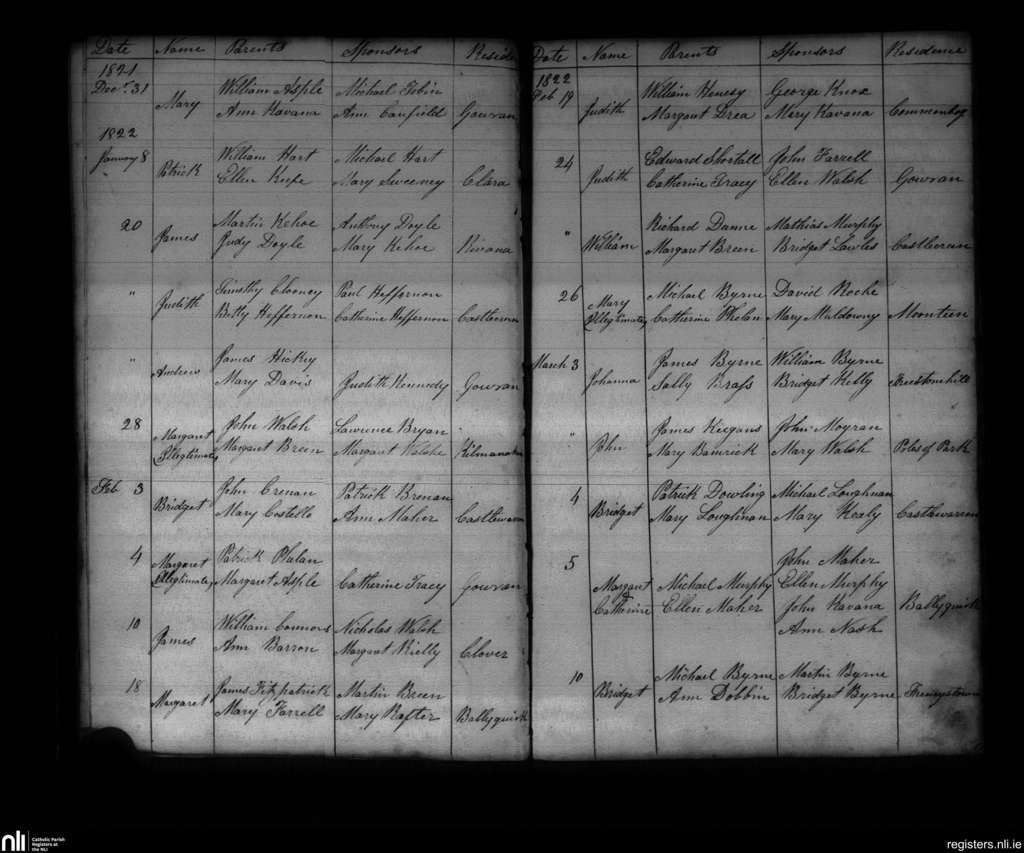 Date Name Parents Sponsors Reside
1821
Decr. 31 William Asple Michael Tobin
Mary Ann Kavana Ann Canfield Gowran
1822
January 8 William Hart Michael Hart
Patrick Ellen Keefe Mary Sweeney Clara
20 Martin Kehoe Anthony Doyle
James Judy Doyle Mary Kehoe
" Timothy Clooney Paul Heffernon
Judith Betty Heffernon Catherine Heffernon
" James Hickey
Andrew Mary Davis Judith Kennedy Gowran
28 John Walsh Lawrence Bryan
Margaret
(Illegitimate) Margaret Breen Margaret Walshe
Feb 3 John Crenan Patrick Brenan
Bridget Mary Costello Ann Maher
4 Margaret Patrick Phelan
(Illegitimate) Margaret Asple Catherine Tracy Gowran
10 William Connors Nicholas Walsh
James Ann Barron Margaret Kielly Clover
18 James Fitzpatrick Martin Breen
Margaret Mary Farrell Mary Rafter Ballyquirk
Date Name Parents Sponsors Residence
1822
Feb 19 William Henesy George Knox
Judith Margaret Drea Mary Kavana
24 Edward Shortall John Farrell
Judith Catherine Tracy Ellen Walsh Gowran
" Richard Dunne Mathias Murphy
William Margaret Breen Bridget Lawles
26 Mary Michael Byrne David Roche
(Illegitimate) Catherine Phelan Mary Muldowny
March 3 James Byrne William Byrne
Johanna Sally Brass Bridget Kelly Freestonehill
" James Keegans John Moyran
John Mary Bamrick Mary Walsh Poles of Park
4 Patrick Dowling Michael Loughnan
Bridget Mary Loughnan Mary Kealy Castlewarren
5 John Maher
Margaret Michael Murphy Ellen Murphy
&
Catherine Ellen Maher John Kavana Ballyquirk
Ann Nash
10 Michael Byrne Martin Byrne
Bridget Ann Dobbin Bridget Byrne
nli Catholic Parish
Registers at
the NLI
registers.nli.ie